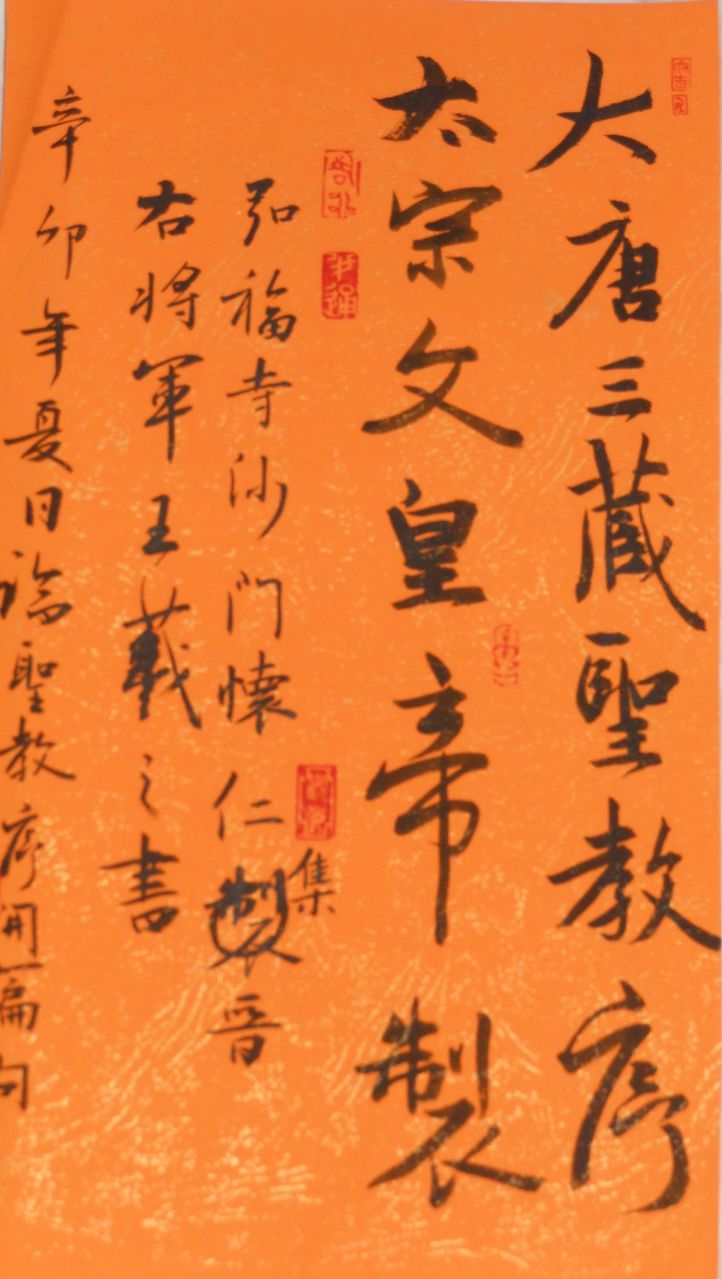 大唐三藏聖教序
太宗文皇帝製
弘福寺沙門懷仁集晉
右將軍王羲之書
辛卯年夏日臨聖教序開篇句